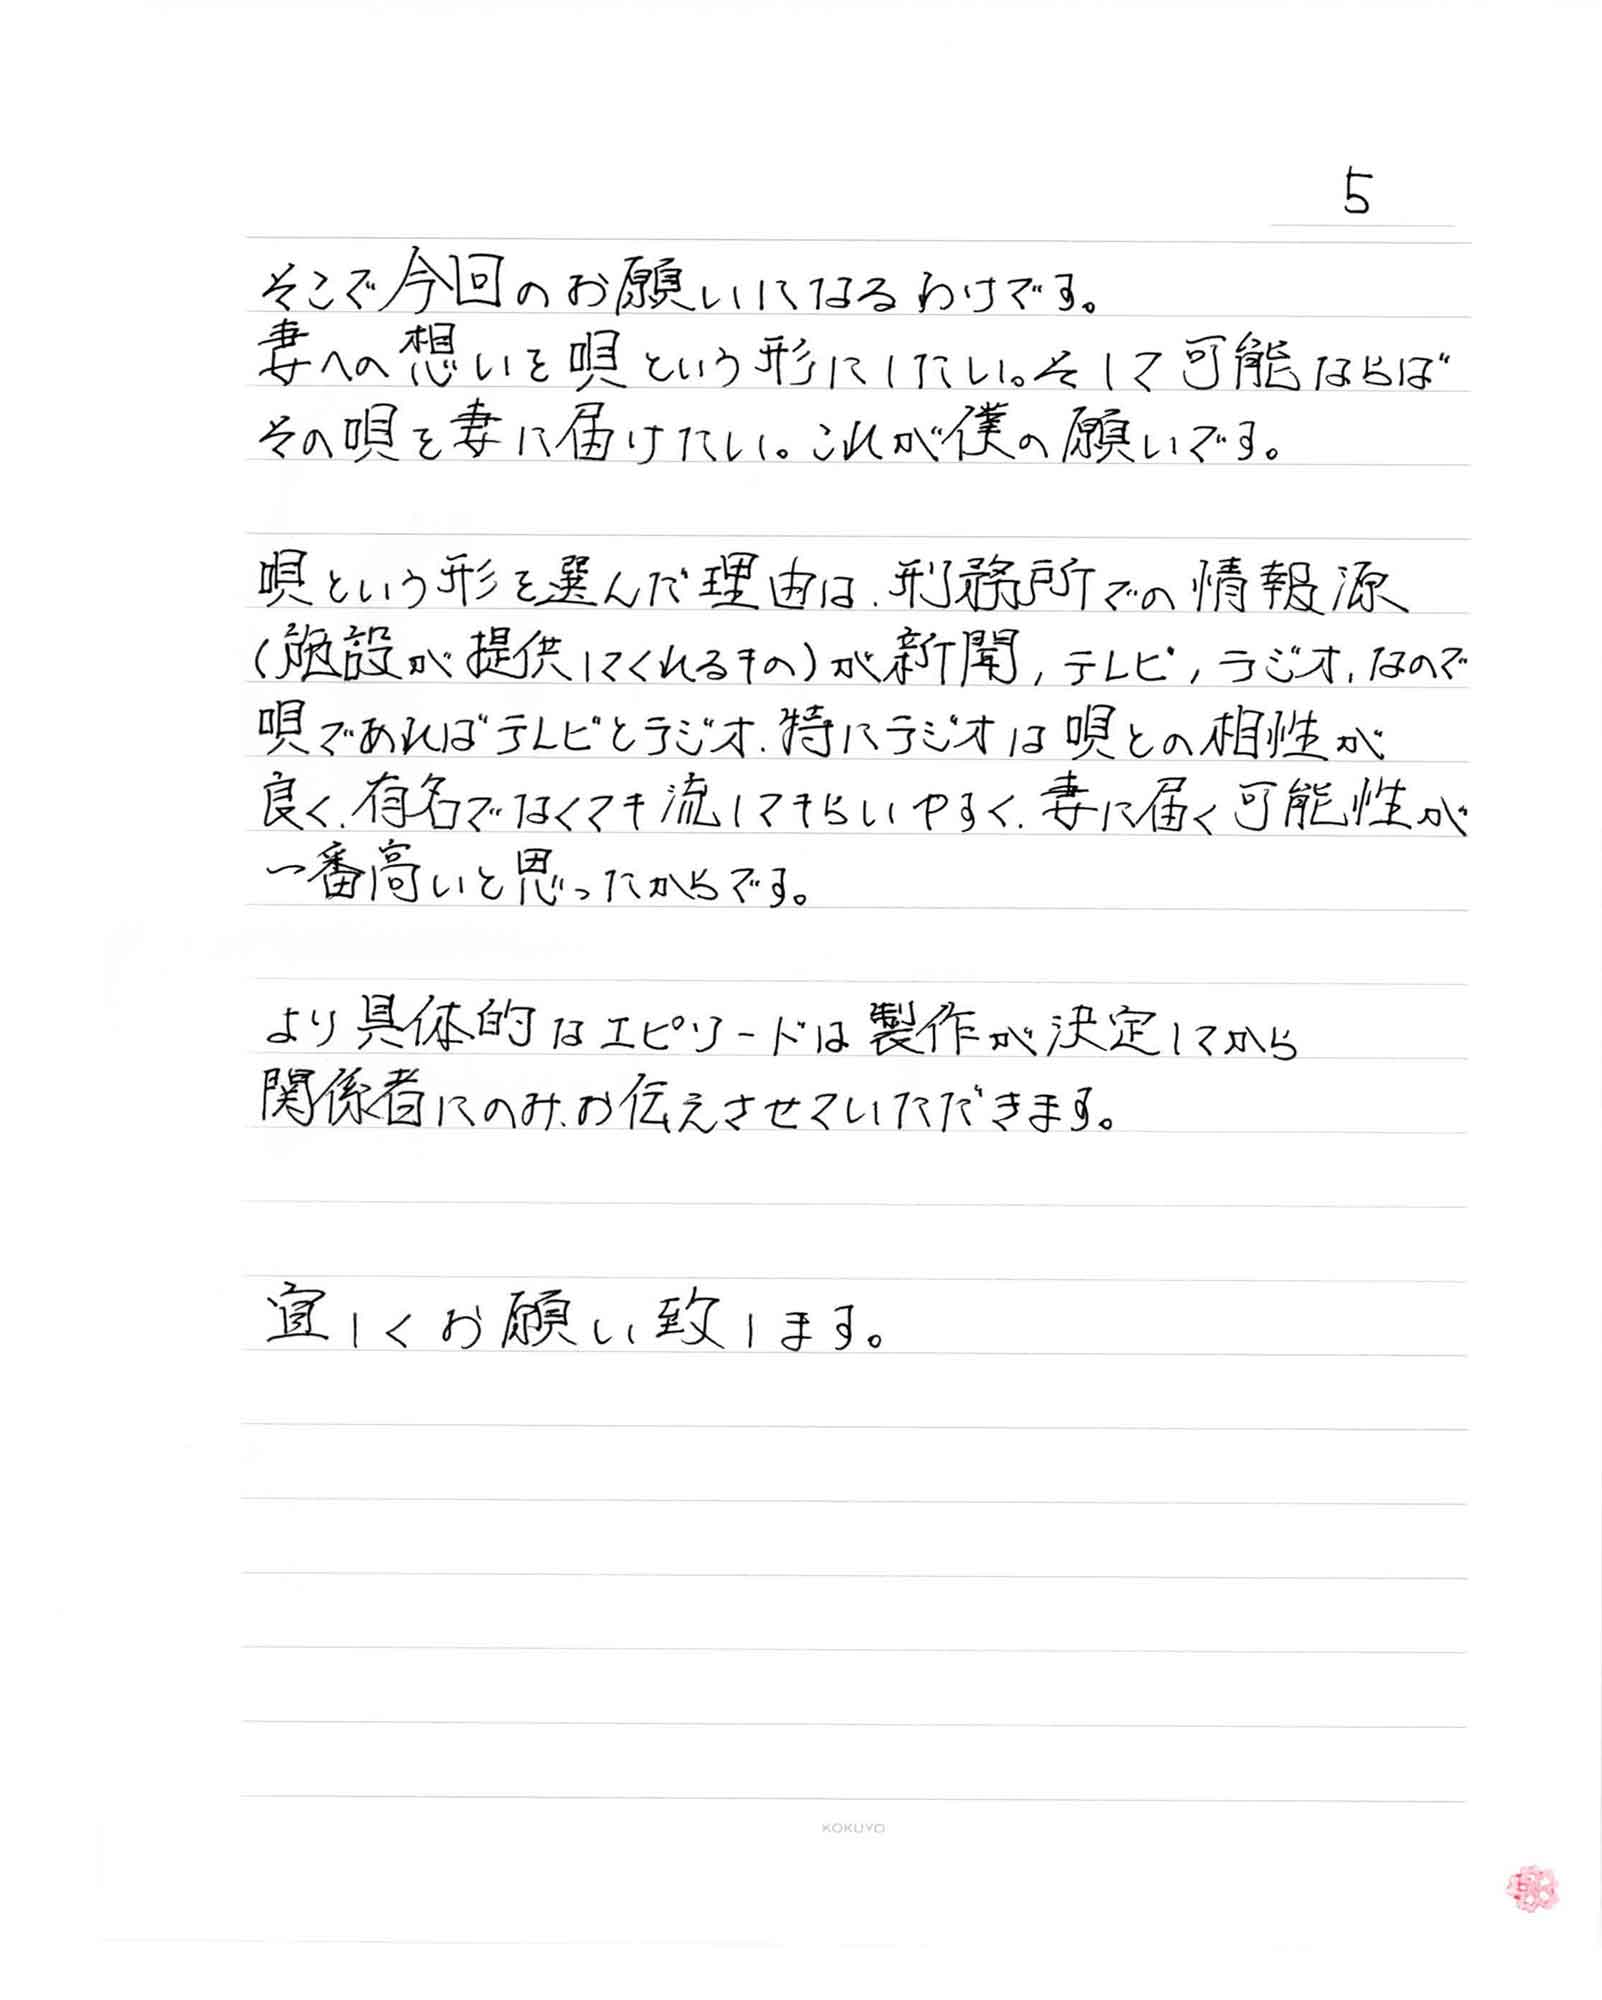 5
そこで今回のお願いになるわけです。
妻への想いを唄という形にしたい。そして可能ならば
その唄を妻に届けたい。これが僕の願いです。
唄という形を選んだ理由は、刑務所での情報源
(施設が提供してくれるもの)が新聞,テレビ,ラジオ、なので
唄であればテレビとラジオ、特にラジオは唄との相性が
良く、有名でなくても流してもらいやすく、妻に届く可能性が
一番高いと思ったからです。
より具体的なエピソードは製作が決定してから
関係者にのみ、お伝えさせていただきます。
宜しくお願い致します。
KOKUYO